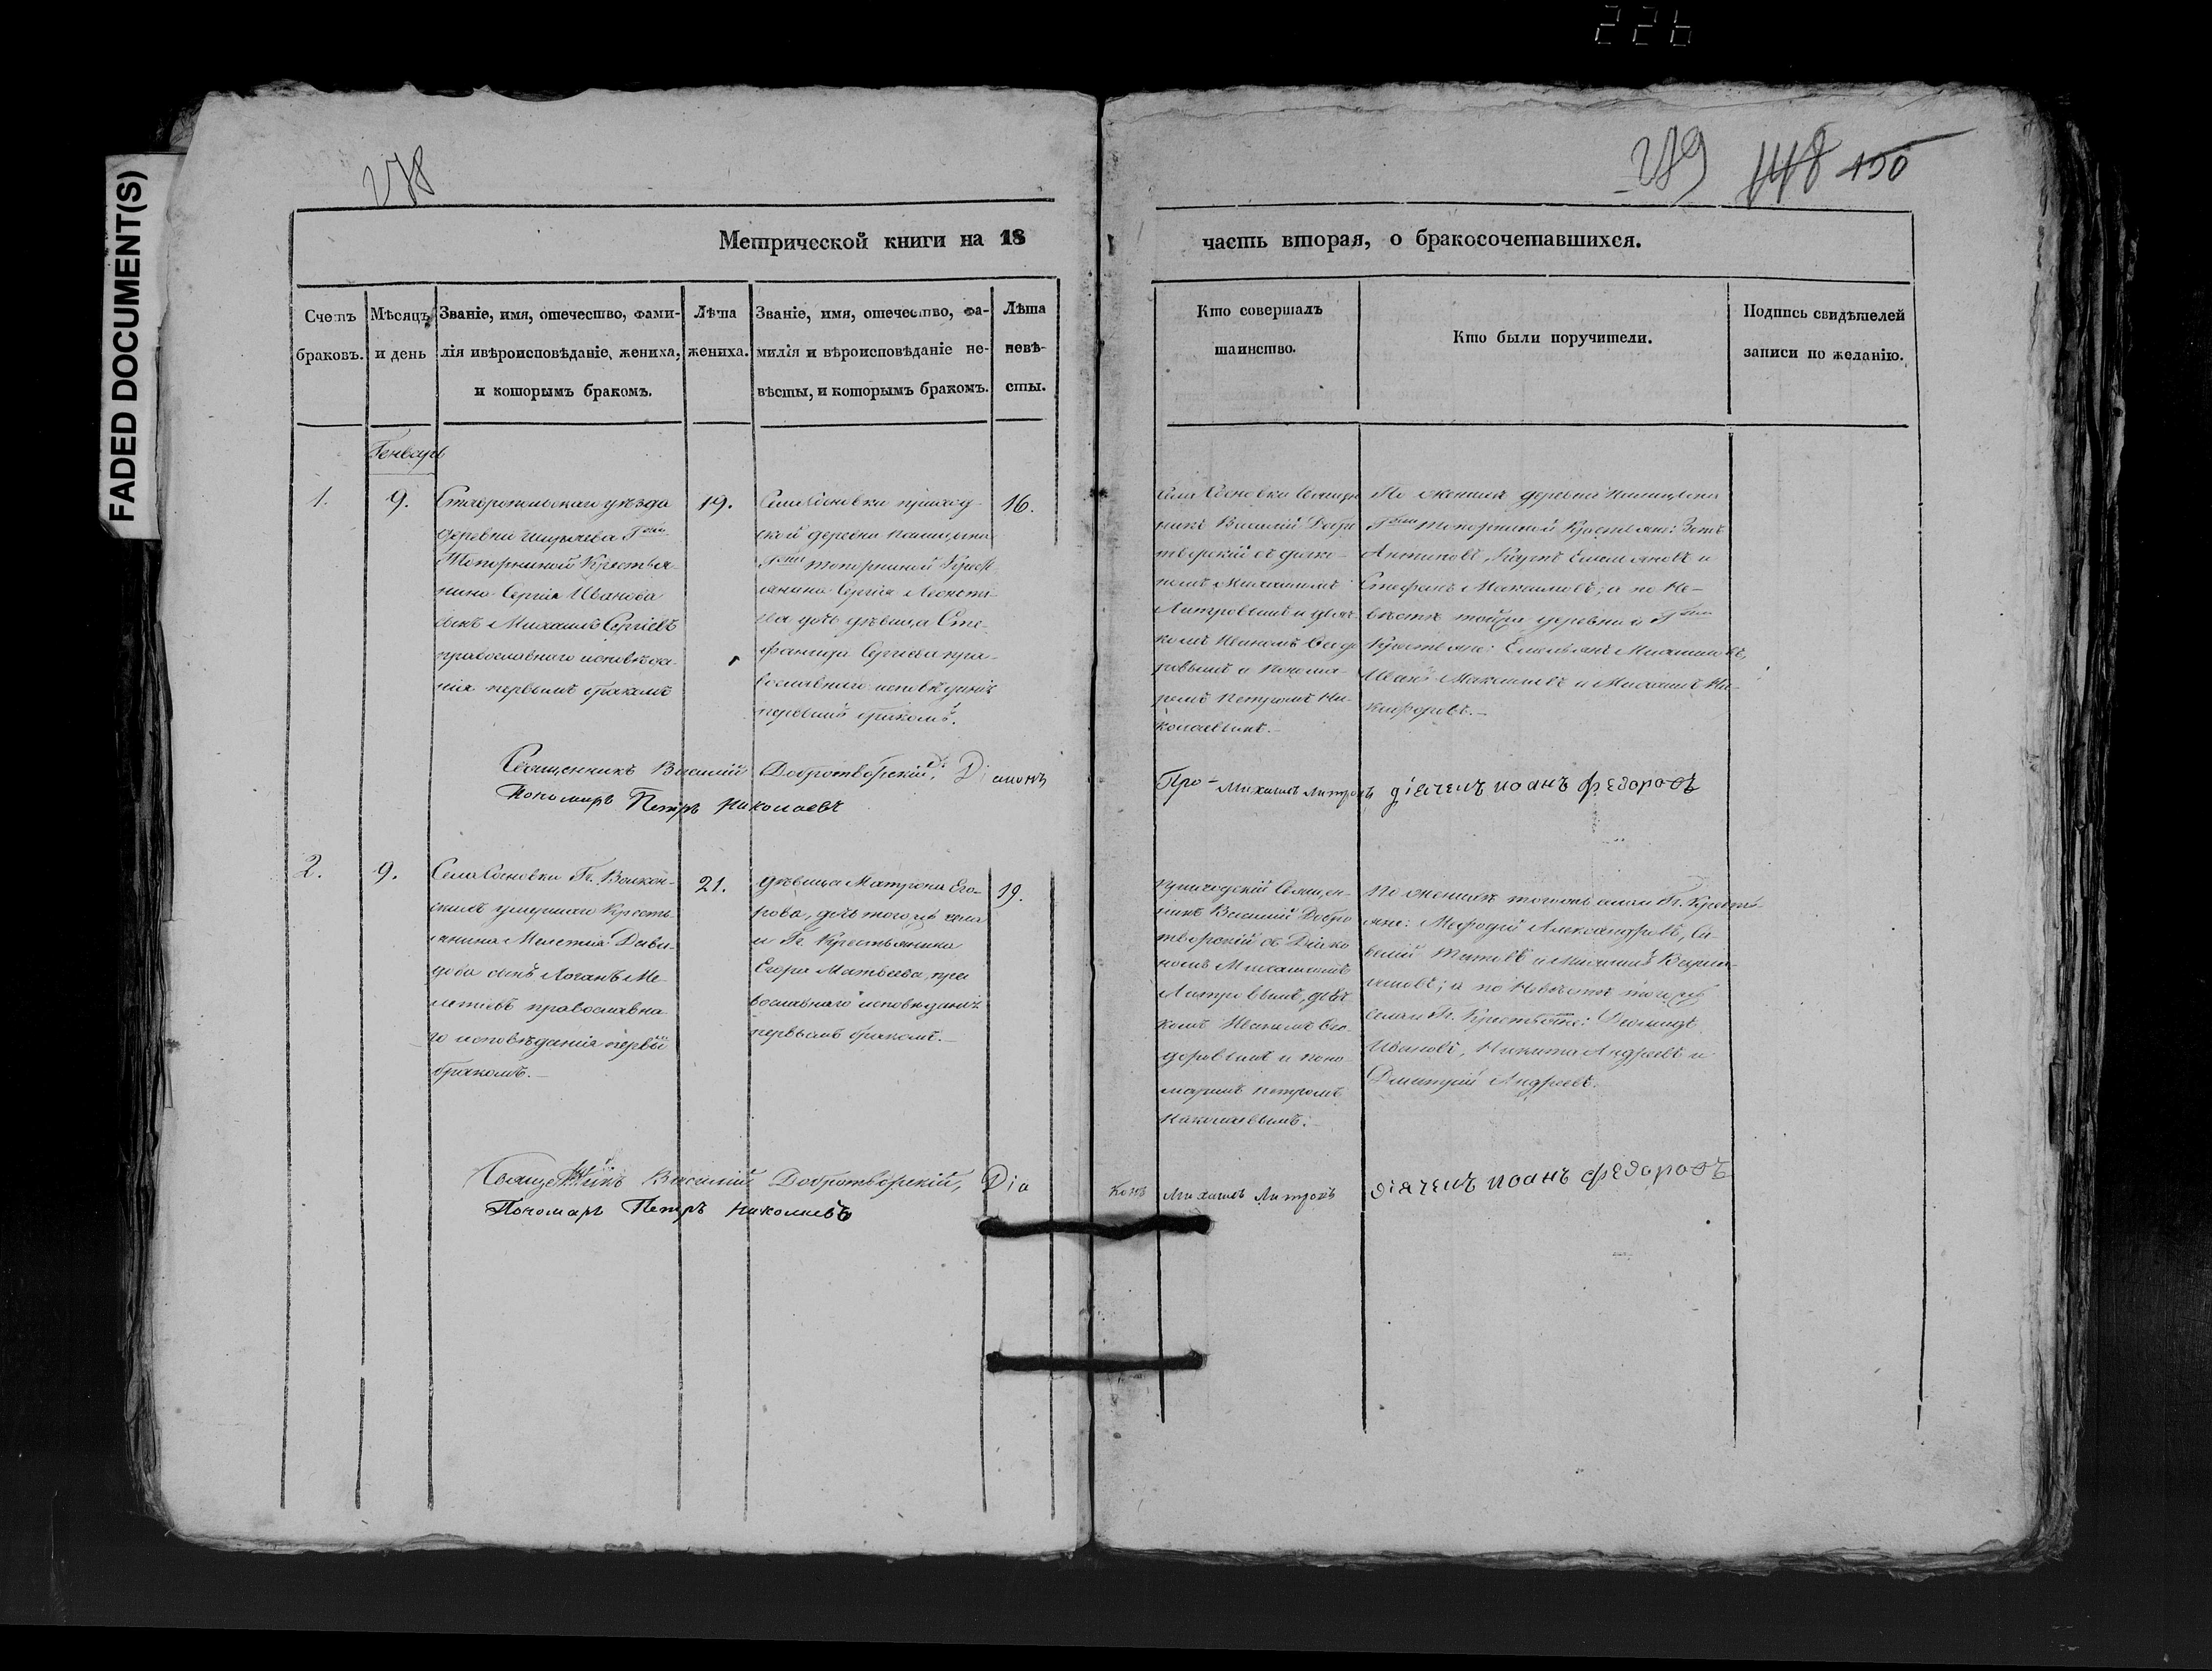 226
FADED DOCUMENT(S)
148 150
Метрической книги на 18
часть вторая, о бракосочетавшихся.
Счетъ браковъ.
Мѣсяцъ и день
Званіе, имя, отечество, фами-
лія ивѣроисповѣданіе, жениха,
и которымъ бракомъ.
Лѣта
жениха.
Званіе, имя, отечество, фа-
милія и вѣроисповѣданіе не-
вѣсты, и которымъ бракомъ.
Лѣта
невѣ-
сты.
Кто совершалъ
таинство.
Кто были поручители.
Подпись свидѣтелей
записи по желанію.
Генварь
1.
9.
Ставропольскаго уѣзда
деревни Г
Топорниной Крестья-
нина Сергія Иванова
сынъ Михаилъ Сергіевъ
православнаго исповѣда-
нія первымъ бракомъ
19.
Села Сосновки приход-
ской деревни
Топорниной Крест
янина Сергія
дочь дѣвица Сте-
фанида Сергіева пра-
вославнаго исповѣданія
первымъ бракомъ.
16.
Села Сосновки Священ
никъ Василій Добро
творскій съ діако-
номъ Михаиломъ
Митровымъ и дьяч
комъ Иваномъ Федо
ровымъ и понома-
ремъ Петромъ Ни-
колаевымъ.
По женихѣ деревни
Топорниной Крестьяне:
Антиповъ, Емельяновъ и
Стефанъ Максимовъ; а по Не-
вѣстѣ тойже деревни и
Крестьяне: Емельянъ
Иванъ Максимовъ и Михаилъ Ни-
кифоровъ.
Священникъ Василій Добротворскій, Діаконъ
Михаилъ дІячекъ иоанъ федоровъ
Пономарь Петръ Николаевъ
2.
9.
Села Сосновки Гг. Волкон-
скихъ умершаго Кресть-
янина Мелетія Давы-
дова сынъ Меле-
тіевъ православна-
го исповѣданія первымъ
бракомъ.
21.
дѣвица Матрона Его-
рова, дочь тогожъ села
и Гг. Крестьянина
Егора Матвеева, пра
вославнаго исповѣданія
первымъ бракомъ.
19.
Приходскій Священ-
никъ Василій Добро
творскій съ Діако
номъ Михаиломъ
Митровымъ, дьяч
комъ Иваномъ Фео
доровымъ и поно
маремъ Петромъ
Николаевымъ.
По женихѣ тогожъ села и Гг. Кресть-
яне: Мефодій Александровъ, Са-
велій Титовъ и Михаилъ
а по Невѣстѣ тогожъ
села и Гг. Крестьяне:
Ивановъ, Никита Андреевъ и
Дмитрій Андреевъ.
Священникъ Василій Добротворскій, Діа
конъ Михаилъ діячекъ иоанъ федоровъ
Пономарь Петръ Николаевъ